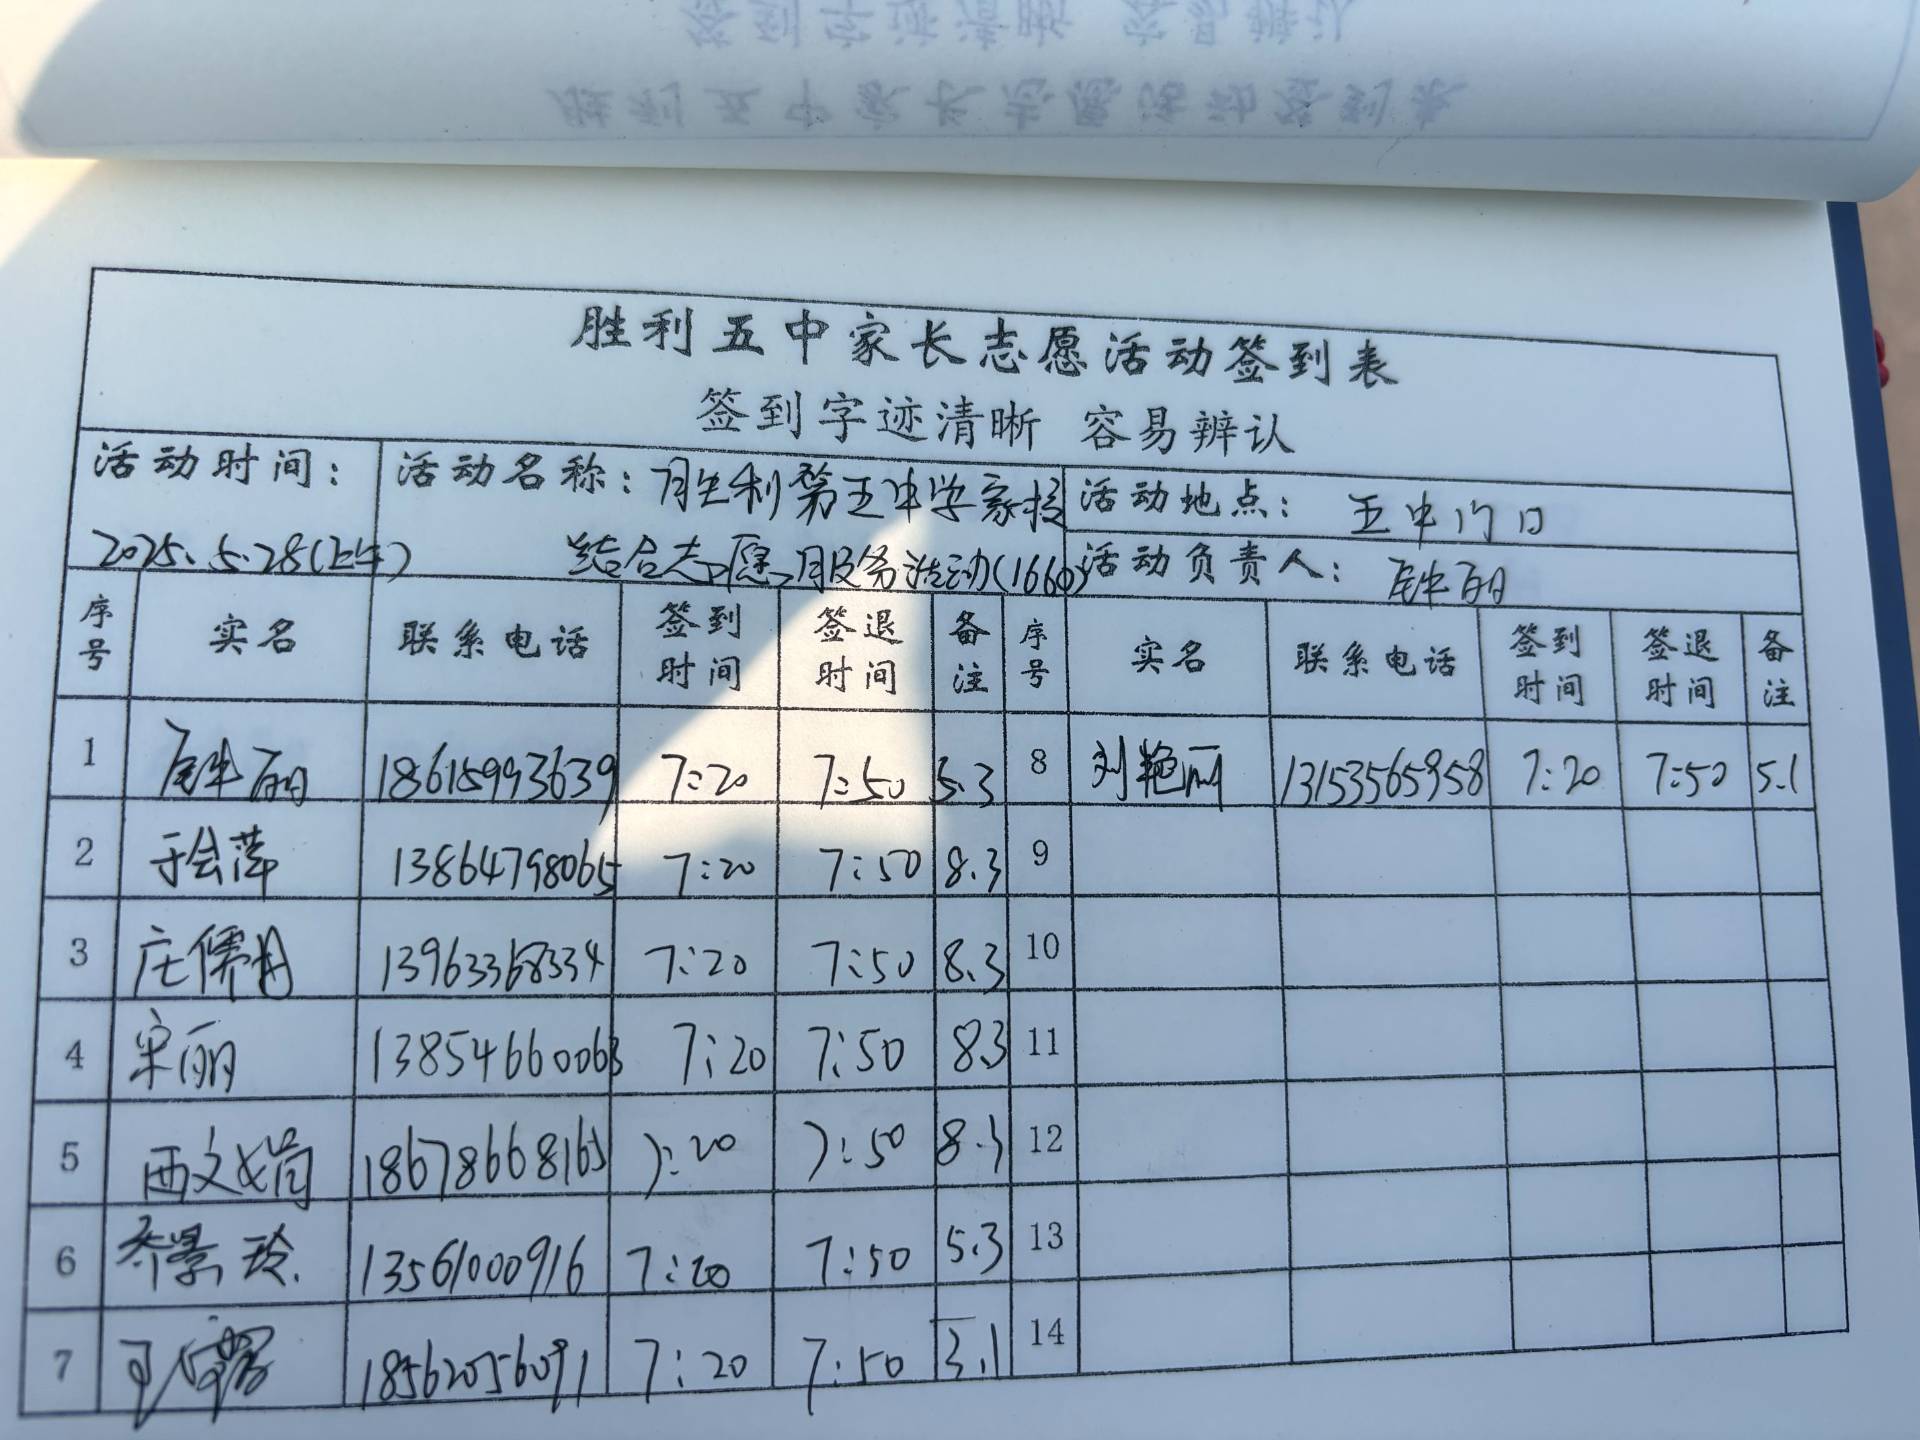 胜利五中家长志愿活动签到表
签到字迹清晰 容易辨认
活动时间：
2025.5.28(上午)
活动名称：胜利第五中学家校
结合志愿服务活动(1660)
活动地点： 五中门口
活动负责人：
序号 实名 联系电话 签到时间 签退时间 备注 序号 实名 联系电话 签到时间 签退时间 备注
1 18615993639 7:20 7:50 5.3 8 刘艳丽 13153565958 7:20 7:50 5.1
2 于会萍 13864798065 7:20 7:50 8.3 9
3 庄儒 13963368334 7:20 7:50 8.3 10
4 宋丽 13854660063 7:20 7:50 8.3 11
5 西文 18678668165 7:20 7:50 8.3 12
6 乔景玲 13561000916 7:20 7:50 5.3 13
7 18562056091 7:20 7:50 3.1 14